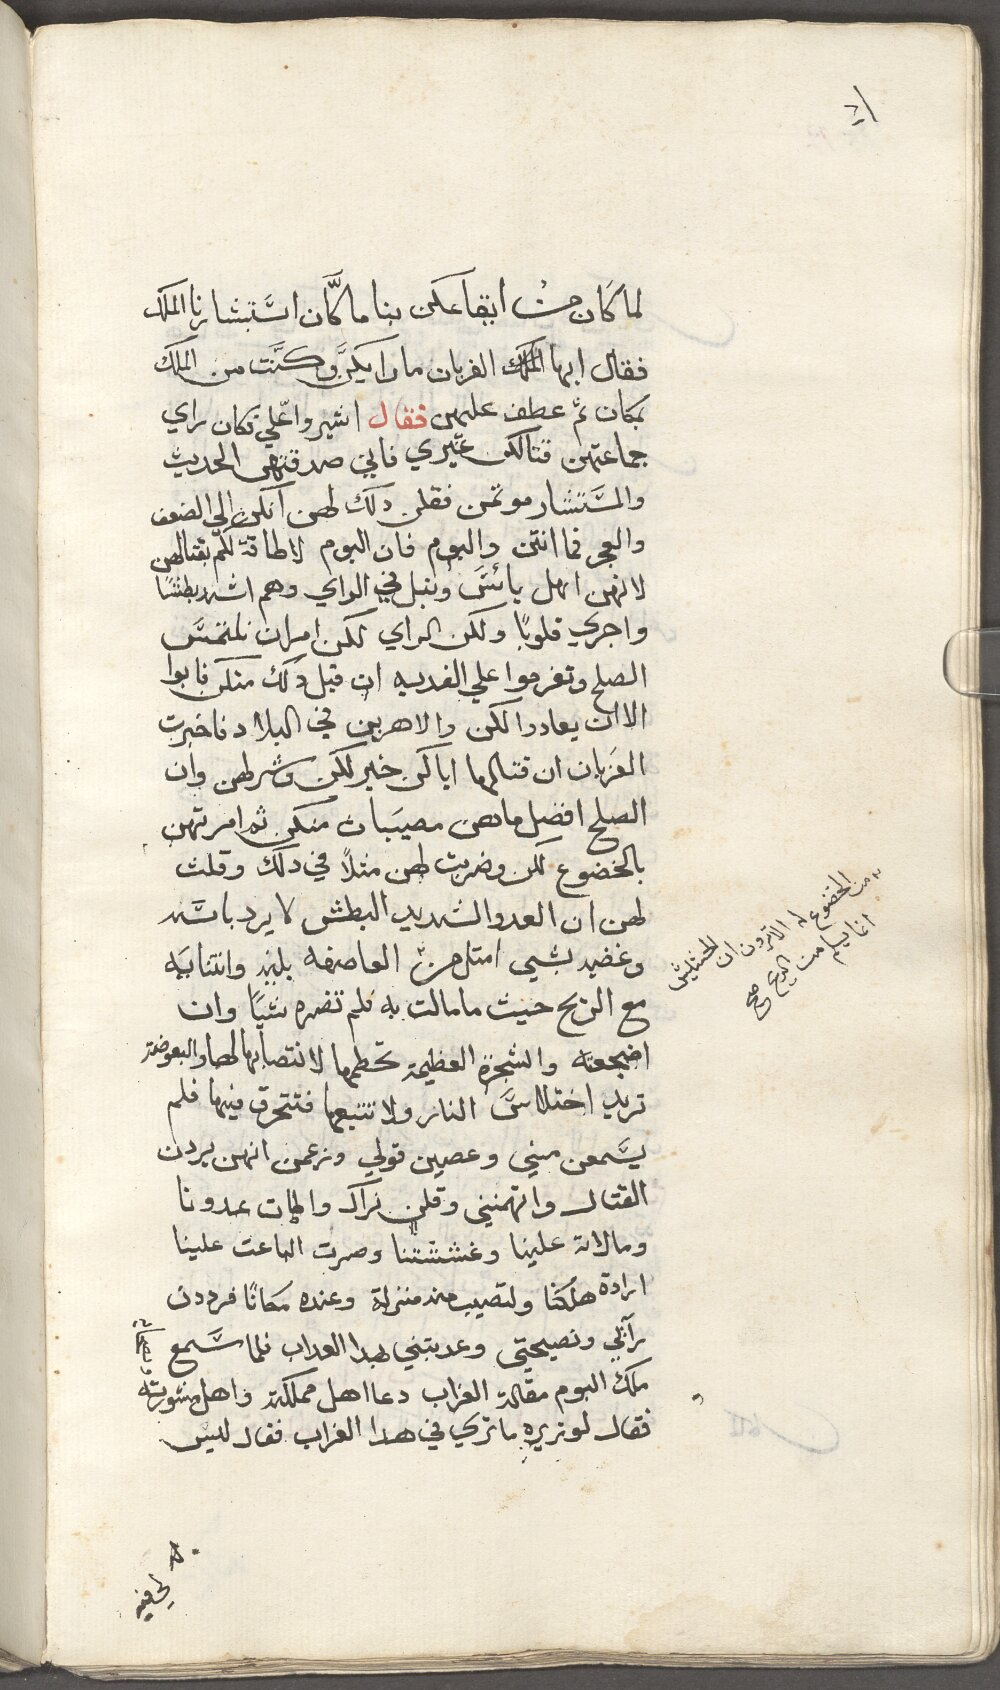 لما كان من ايقاعكن بنا ما كان استشارنا الملك
فقال ايها الملك الغربان مادا يكن وكنت من الملك
بمكان ثم عطف عليهن فقال اشيروا علي فكان راي
جماعتهن قتالكن غيري فاني صدقتهن الحديث
والمستشار موتمن فقلن دلك لهن انكن الي الضعف
والعجز فما انتن والبوم فان البوم لا طاقة لكم بقتالهن
لانهن اهل بائس ونبل في الراي وهم اشد بطشا
واجري قلوبًا ولكن الراي لكن امران نلتمس
الصلح وتغرموا علي الفديه ان قبل دلك منكن فابوا
الا ان يعادوا لكن والا هربن في البلاد فاخبرت
الغربان ان قتالها اياكن خير لكن وشر لهن وان
الصلح افضل ما هن مصيبات منكن ثم امرتهن
بالخضوع لكن وضربت لهن مثلاً في دلك وقلت
لهن ان العدو الشديد البطش لا يرد باسه
وغضبه بشي امثل من العاصفه بلينه وانثنايه
مع الريح حيث ما مالت به فلم تضره شيًا وان
اضجعته والشجرة العظيمة تحطمها لانتصابها لها والبعوضة
تريد اختلاس النار ولا تتبعها فتتحرق فيها فلم
يسمعن مني وعصين قولي وزعمن انهن يردن
القتال واتهمنني وقلن نراك واليت عدونا
ومالاته علينا وغششتنا وصرت الباعث علينا
ارادة هلكنا ولتصيب عنده منزلة وعنده مكانًا فرددن
رآئي ونصيحتي وعدبتني بهدا العداب فلما سمع
ملك البوم مقالة الغراب دعا اهل مملكته واهل مشورته
فقال لوزيره ما تري في هدا الغراب فقال ليس
من الخضوع له الا ترون ان الحشيش
انما يسلم من الريح صح